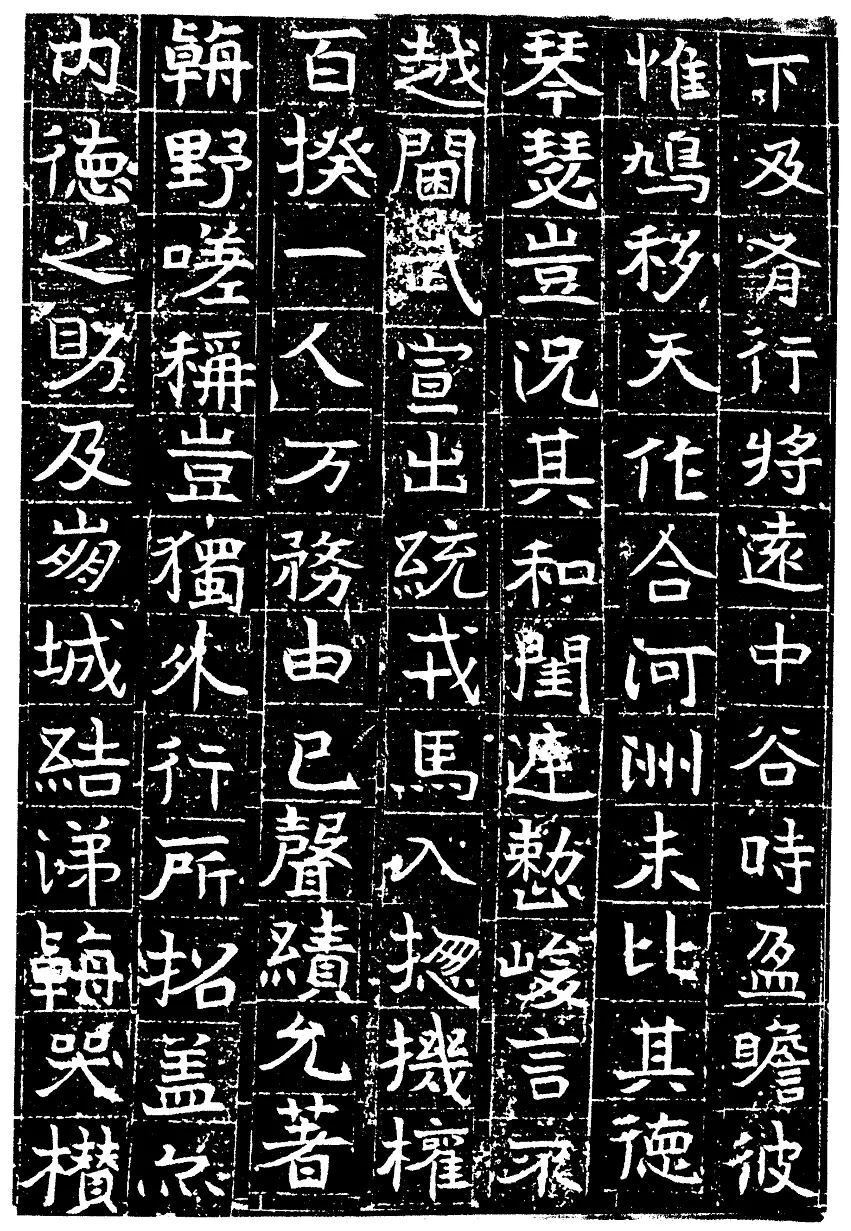 下及肴行將遠中谷時盈瞻彼
惟鳩移天作合河洲未比其德
琴瑟豈況其和閨庭整峻言不
越閫武宣出統戎馬入揔機權
百揆一人万務由已聲績允著
朝野嗟稱豈獨外行所招盖亦
内德之助及崩城結涕朝哭欑